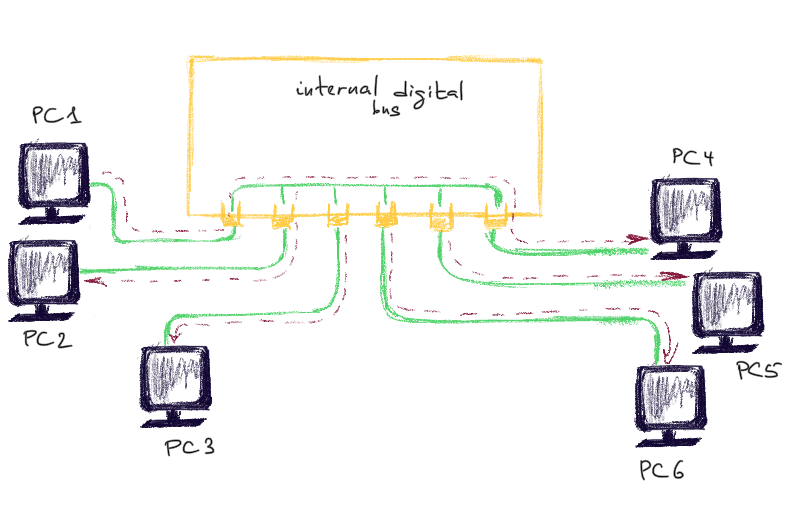 internal digital
bus
PC1
PC2
PC3
PC4
PC5
PC6